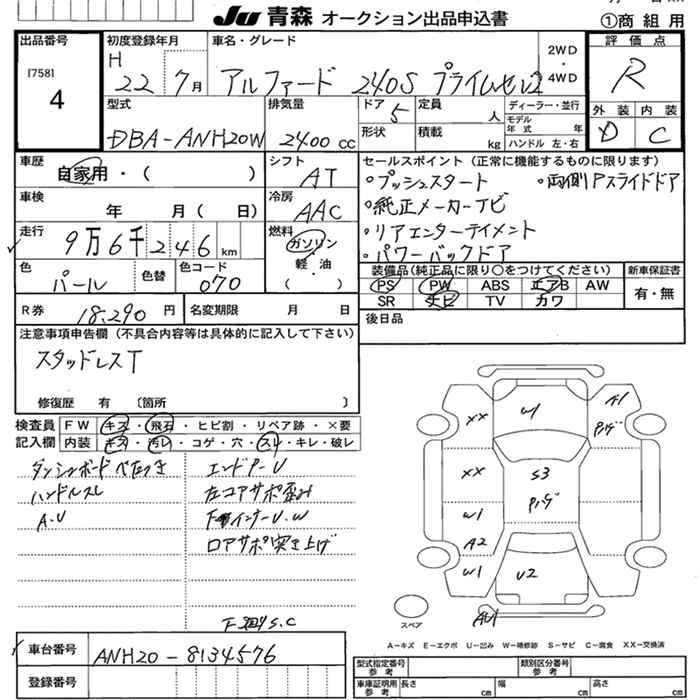 Ju 青森 オークション出品申込書
①商 組 用
出品番号
[758]
4
初度登録年月
H 22 7月
車名・グレード
アルファード 240S プライムセレ2
2WD
・
4WD
評価点
R
外装 内装
D C
型式
DBA-ANH20W
排気量
2400 cc
ドア 5
定員 人
ディーラー・並行
形状
積載 kg
モデル年式 年
ハンドル 左・右
車歴
自家用・( )
シフト
AT
車検
年 月( 日)
冷房
AAC
走行
9万6千246 km
燃料
ガソリン
軽・油
( ・ )
色
パール
色替
色コード
070
R券 18,290 円
名変期限 月 日
セールスポイント(正常に機能するものに限ります)
・プッシュスタート ・両側Pスライドドア
・純正メーカーナビ
・リアエンターテイメント
・パワーバックドア
装備品(純正品に限り○をつけてください)
新車保証書
PS PW ABS エアB AW
有・無
SR ナビ TV カワ
後日品
注意事項申告欄(不具合内容等は具体的に記入して下さい)
スタッドレスT
修復歴 有 〔箇所 〕
検査員記入欄
FW キズ・飛石・ヒビ割・リペア跡・×要
内装 キズ・汚レ・コゲ・穴・スレ・キレ・破レ
ダッシュボードベたつき
ハンドルスレ
A.U
エンドP-U
左コアサポ歪み
下インナーU.W
ロアサポ突き上げ
下廻りS.C
XX
XX
W1
A2
W1
W1
S3
Pハゲ
U2
A1
Pハゲ
AU1
スペア
A-キズ E-エクボ U-凹み W-補修跡 S-サビ C-腐食 XX-交換済
車台番号
ANH20-8134576
登録番号
型式指定番号
参考
類別区分番号
参考
車庫証明用
参考
長さ cm
幅 cm
高さ cm